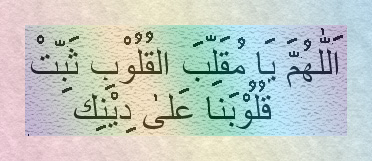 اَللّٰهُمَّ يَا مُقَلِّبَ الْقُلُوْبِ ثَبِّتْ
قُلُوْبَنَا عَلىٰ دِيْنِكَ